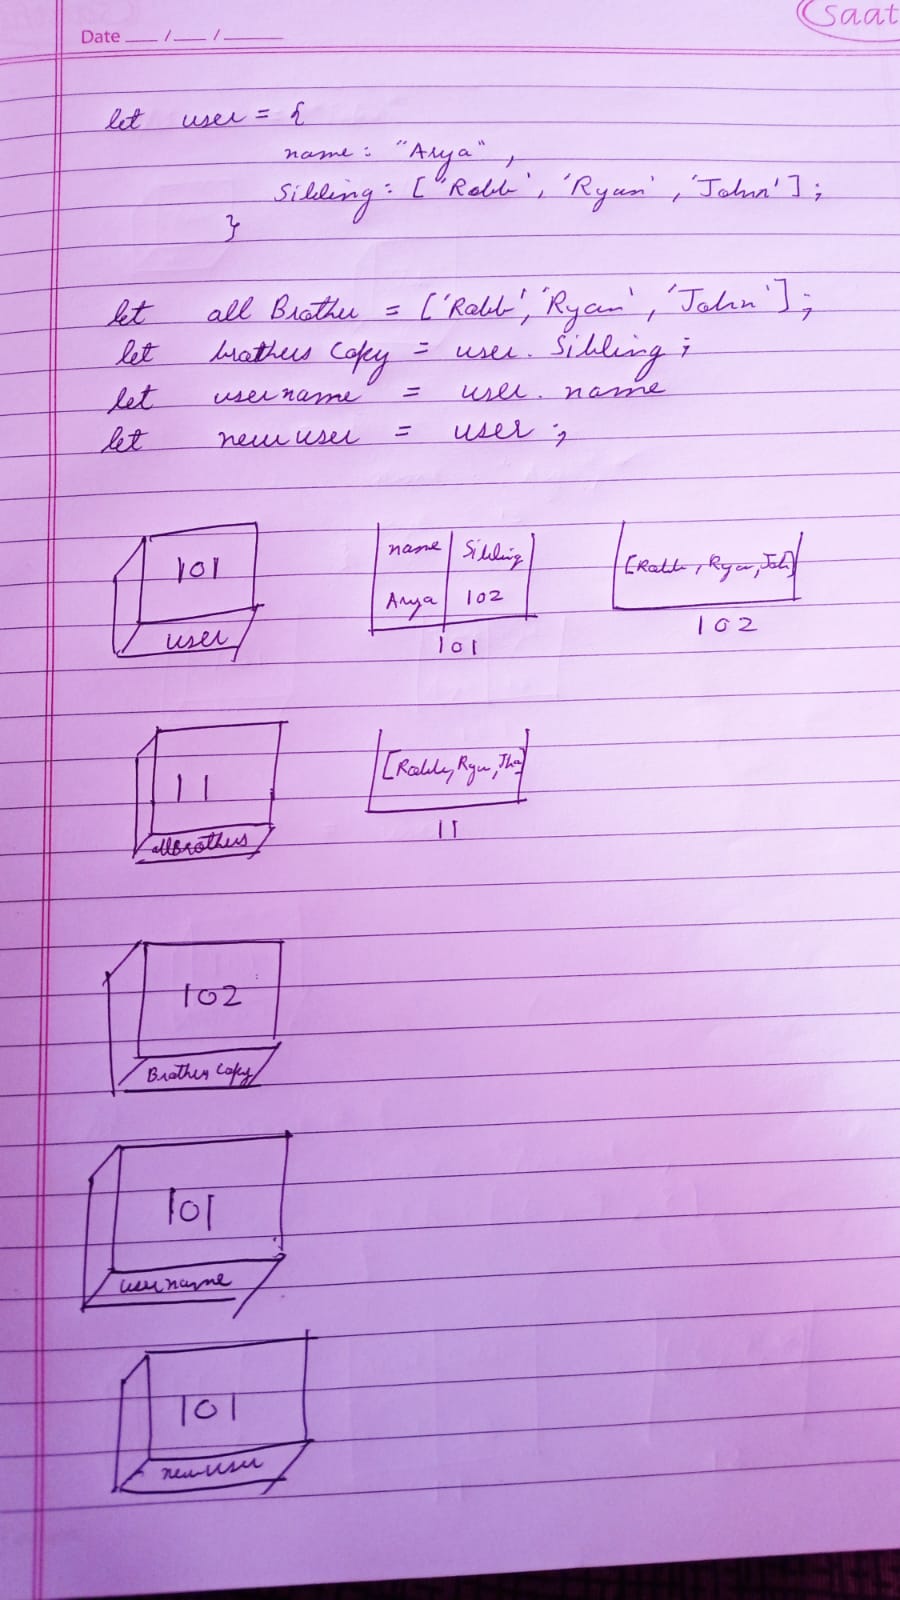 Saat
Date __ / __ / ____
let user = {
name: "Arya",
Sibling: ["Robb', 'Ryan', 'John'];
}
let all Brother = ['Robb', 'Ryan', 'John'];
let brothers Copy = user. Sibling;
let username = user. name
let newuser = user;
101
user
name Sibling
Arya 102
101
[Robb, Ryan, Joh]
102
11
allBrothers
11
102
Brother Copy
101
username
101
newuser